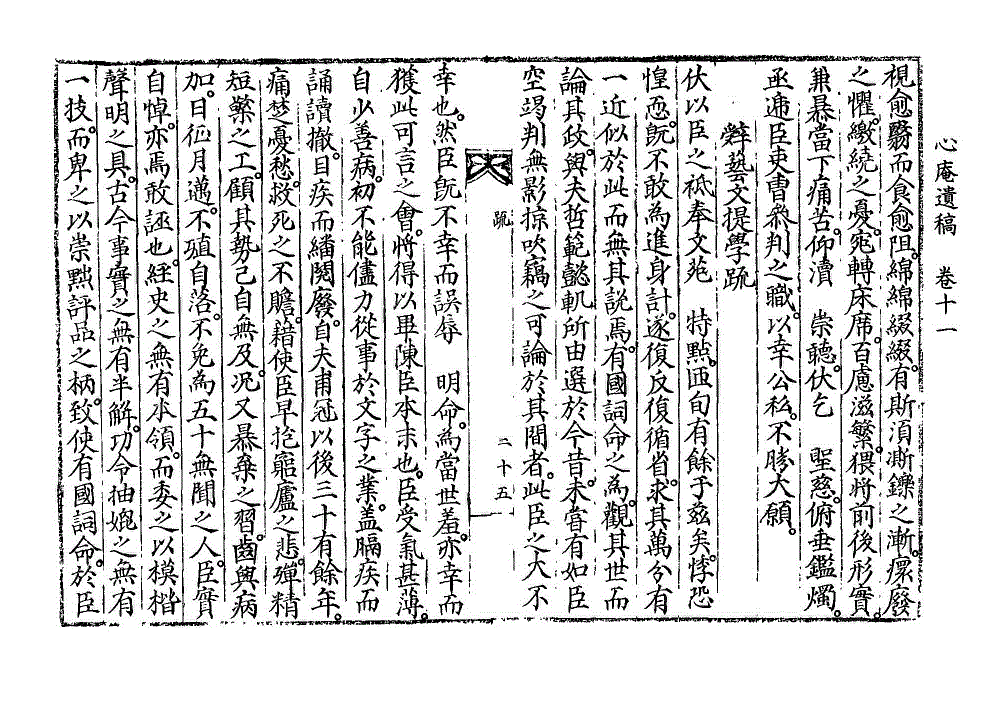 心庵遺稿　卷十一
視愈翳而食愈阻。綿綿綴綴。有斯須澌鑠之漸。瘝廢
之懼。繳繞之憂。宛轉床席。百慮滋繁。猥將前後形實。
兼暴當下痛苦。仰瀆　崇聽。伏乞　聖慈。俯垂鑑燭。
亟遞臣吏曹參判之職。以幸公私。不勝大願。
辭藝文提學疏
伏以臣之祗奉文苑　特點。洒旬有餘于玆矣。悸恐
惶恧。旣不敢為進身計。遂復反復循省。求其萬分有
一近似於此而無其說焉。有國詞命之為。觀其世而
論其政。與夫哲範懿軌所由選於今昔。未嘗有如臣
空竭判無影掠吹竊之可論於其間者。此臣之大不
疏
二十五
幸也。然臣旣不幸而誤辱　明命。為當世羞。亦幸而
獲此可言之會。將得以畢陳臣本末也。臣受氣甚薄。
自少善病。初不能儘力從事於文字之業。盖膈疾而
誦讀撤。目疾而繙閱廢。自夫甫冠以後三十有餘年。
痛楚憂愁。救死之不贍。藉使臣早抱窮廬之悲。殫精
短檠之工。顧其勢已自無及。况又暴棄之習。齒與病
加。日征月邁。不殖自落。不免為五十無聞之人。臣實
自悼。亦焉敢誣也。經史之無有本領。而委之以模楷
聲明之具。古今事實之無有半解。功令抽媲之無有
一技。而卑之以崇㸃評品之柄。致使有國詞命。於臣